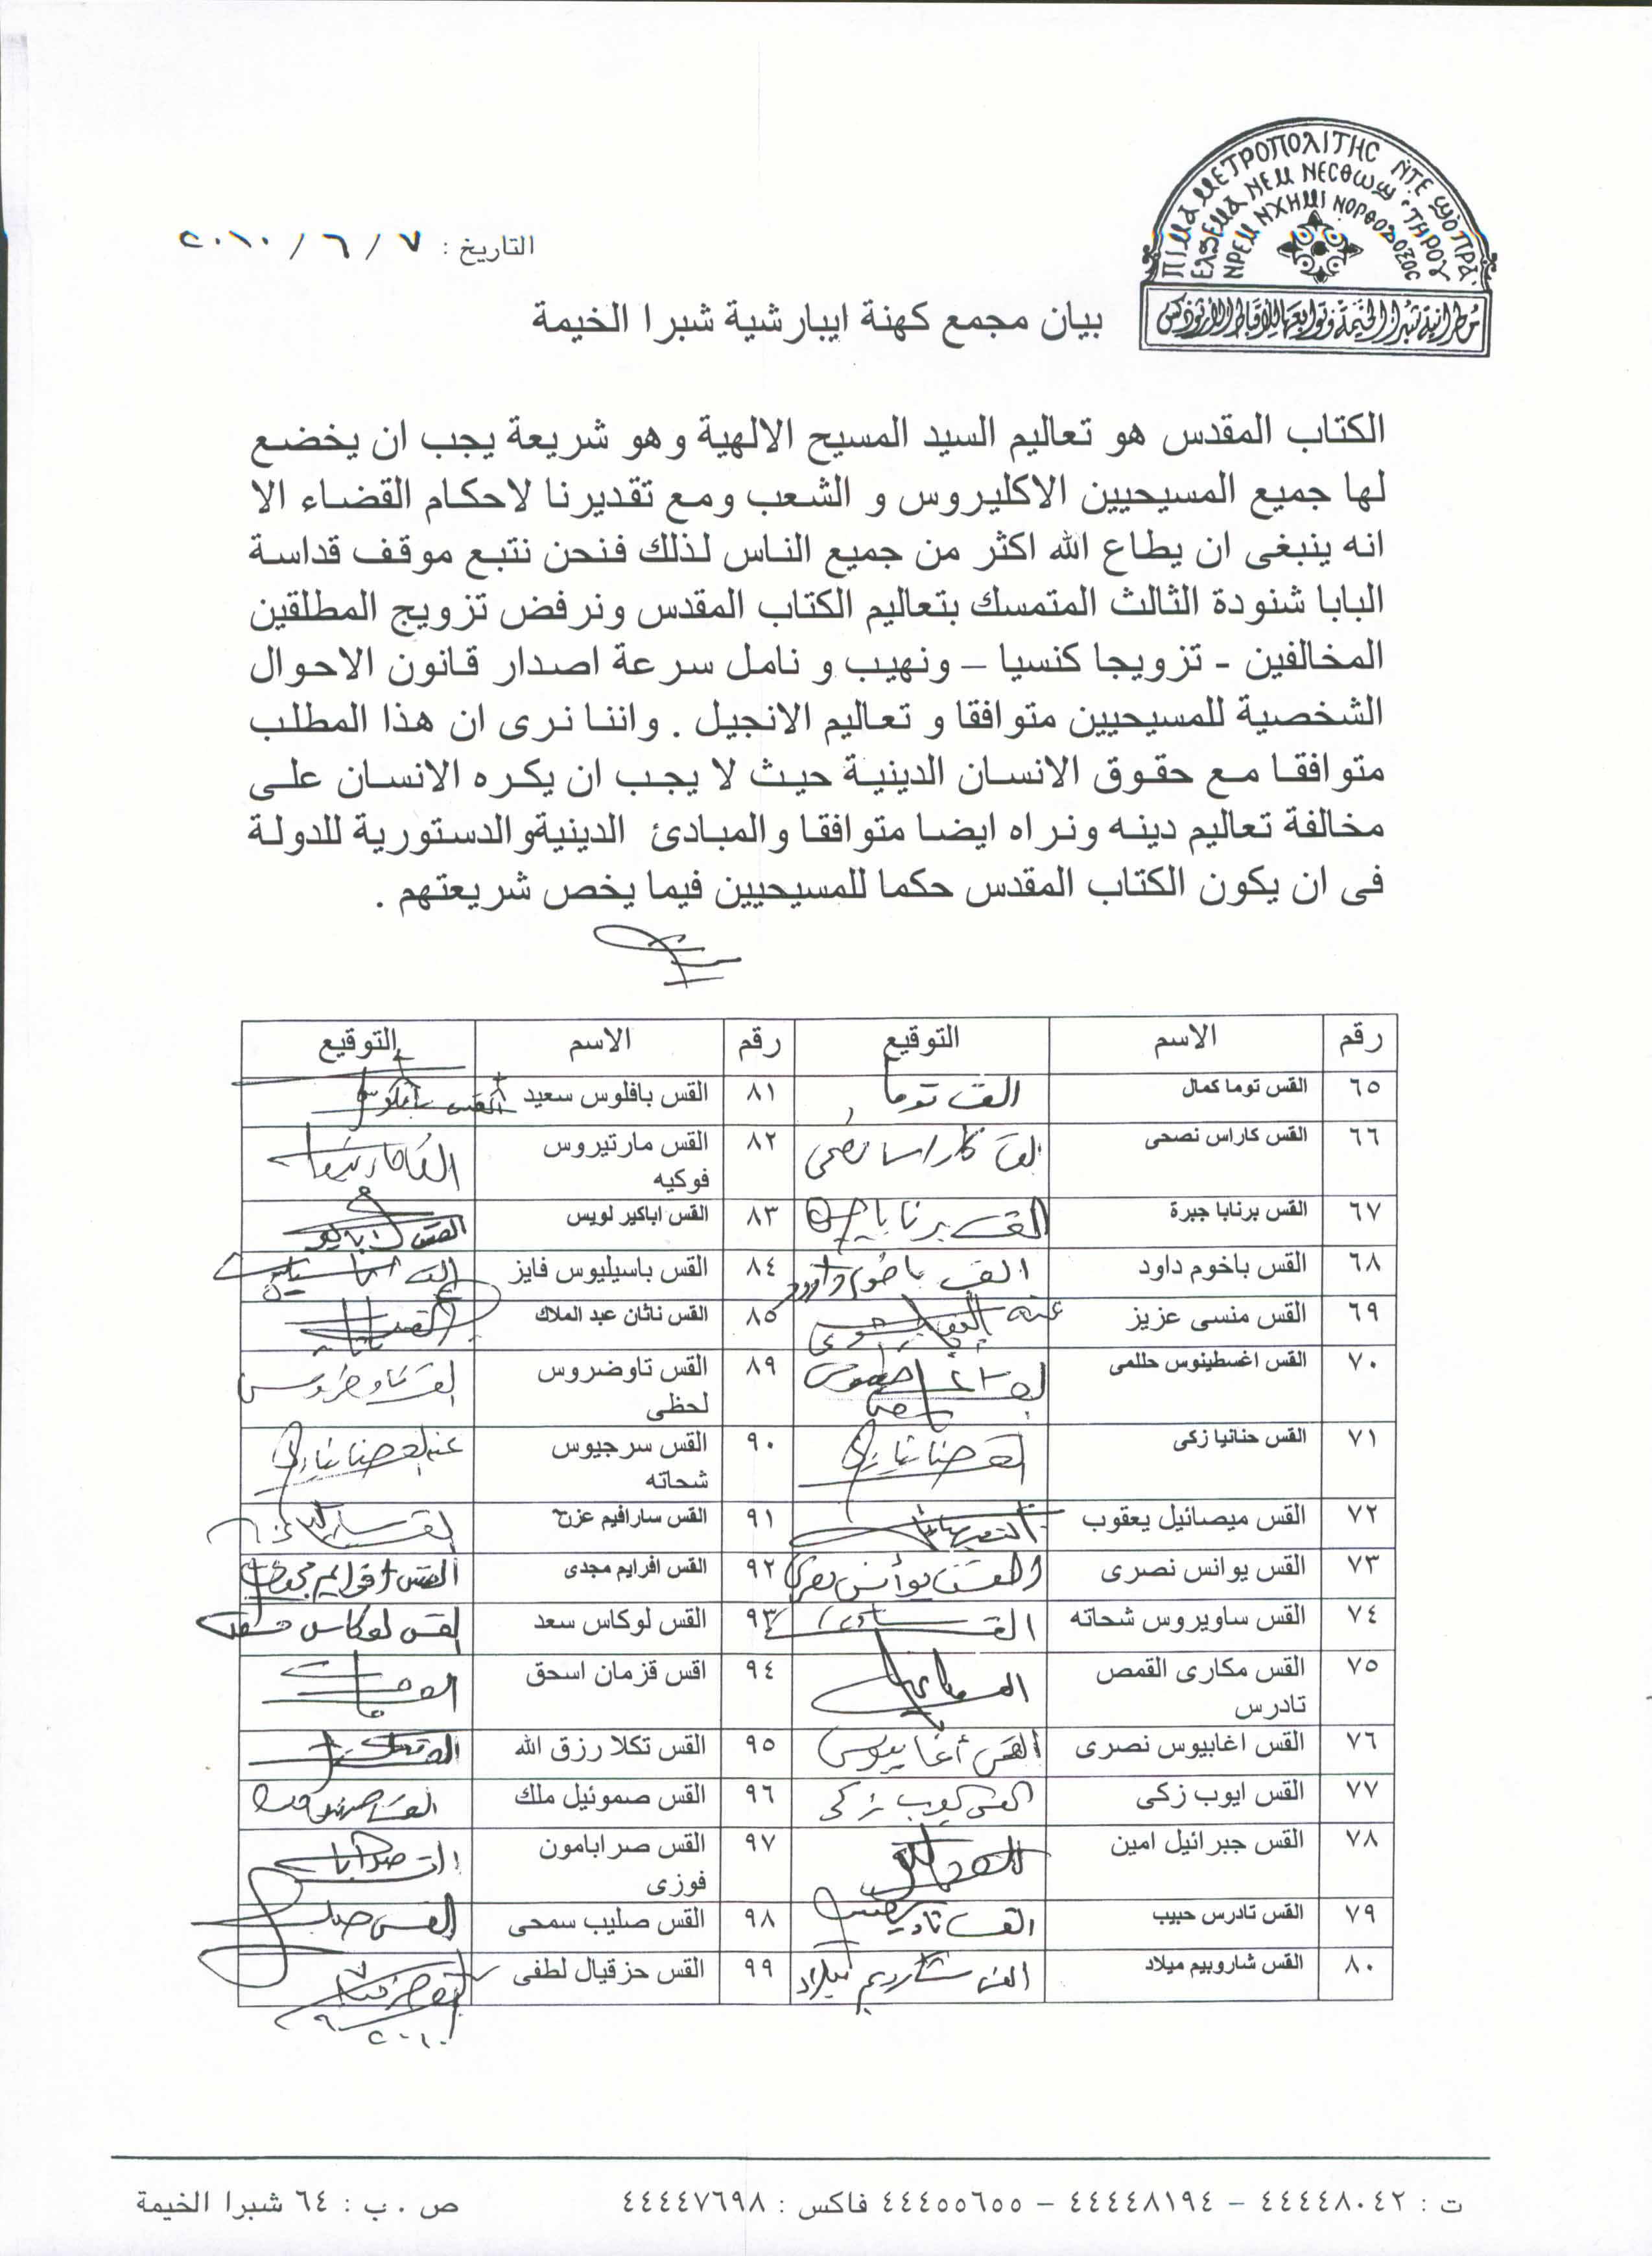 ⲠⲒⲘⲀⲘⲈⲦⲢⲞⲠⲞⲖⲒⲦⲎⲤ ⲚⲦⲈ ϢⲞⲠⲢⲀ
ⲚⲈⲘ ⲚⲈⲤⲐⲰϢ ⲦⲎⲢⲞⲨ
ⲚⲢⲈⲘ ⲚⲬⲎⲘⲒ ⲚⲞⲢⲐⲞⲆⲞⲜⲞⲤ
مطرانية شبرا الخيمة وتوابعها للأقباط الأرثوذكس
التاريخ : ٧ / ٦ / ٢٠١٠
بيان مجمع كهنة ايبارشية شبرا الخيمة
الكتاب المقدس هو تعاليم السيد المسيح الالهية وهو شريعة يجب ان يخضع
لها جميع المسيحيين الاكليروس و الشعب ومع تقديرنا لاحكام القضاء الا
انه ينبغى ان يطاع الله اكثر من جميع الناس لذلك فنحن نتبع موقف قداسة
البابا شنودة الثالث المتمسك بتعاليم الكتاب المقدس ونرفض تزويج المطلقين
المخالفين - تزويجا كنسيا – ونهيب و نامل سرعة اصدار قانون الاحوال
الشخصية للمسيحيين متوافقا و تعاليم الانجيل . واننا نرى ان هذا المطلب
متوافقا مع حقوق الانسان الدينية حيث لا يجب ان يكره الانسان على
مخالفة تعاليم دينه ونراه ايضا متوافقا والمبادئ الدينيةوالدستورية للدولة
فى ان يكون الكتاب المقدس حكما للمسيحيين فيما يخص شريعتهم .
رقم الاسم التوقيع رقم الاسم التوقيع
٦٥ القس توما كمال القس توما ٨١ القس بافلوس سعيد القس بافلوس
٦٦ القس كاراس نصحى القس كاراس نصحى ٨٢ القس مارتيروس
فوكيه
٦٧ القس برنابا جبرة القس برنابا ٨٣ القس اباكير لويس
٦٨ القس باخوم داود القس باخوم داود ٨٤ القس باسيليوس فايز
٦٩ القس منسى عزيز عنه ٨٥ القس ناثان عبد الملاك
٧٠ القس اغسطينوس حلمى ٨٩ القس تاوضروس
لحظى القس تاوضروس
٧١ القس حنانيا زكى القس حنانيا زكى ٩٠ القس سرجيوس
شحاته عنه القس حنانيا زكى
٧٢ القس ميصائيل يعقوب ٩١ القس سارافيم عزت
٧٣ القس يوانس نصرى القس يوأنس نصرى ٩٢ القس افرايم مجدى القس افرايم مجدى
٧٤ القس ساويروس شحاته القس ٩٣ القس لوكاس سعد القس لوكاس سعد
٧٥ القس مكارى القمص
تادرس القس مكارى ٩٤ اقس قزمان اسحق
٧٦ القس اغابيوس نصرى القس أغابيوس ٩٥ القس تكلا رزق الله
٧٧ القس ايوب زكى القس ايوب زكى ٩٦ القس صموئيل ملك
٧٨ القس جبرائيل امين ٩٧ القس صرابامون
فوزى
٧٩ القس تادرس حبيب القس تادرس ٩٨ القس صليب سمحى القس صليب
٨٠ القس شاروبيم ميلاد القس شاروبيم ميلاد ٩٩ القس حزقيال لطفى القس حزقيال
٢٠١٠
ت : ٤٤٤٤٨٠٤٢ – ٤٤٤٤٨١٩٤ – ٤٤٤٥٥٦٥٥ فاكس : ٤٤٤٤٧٦٩٨ ص . ب : ٦٤ شبرا الخيمة